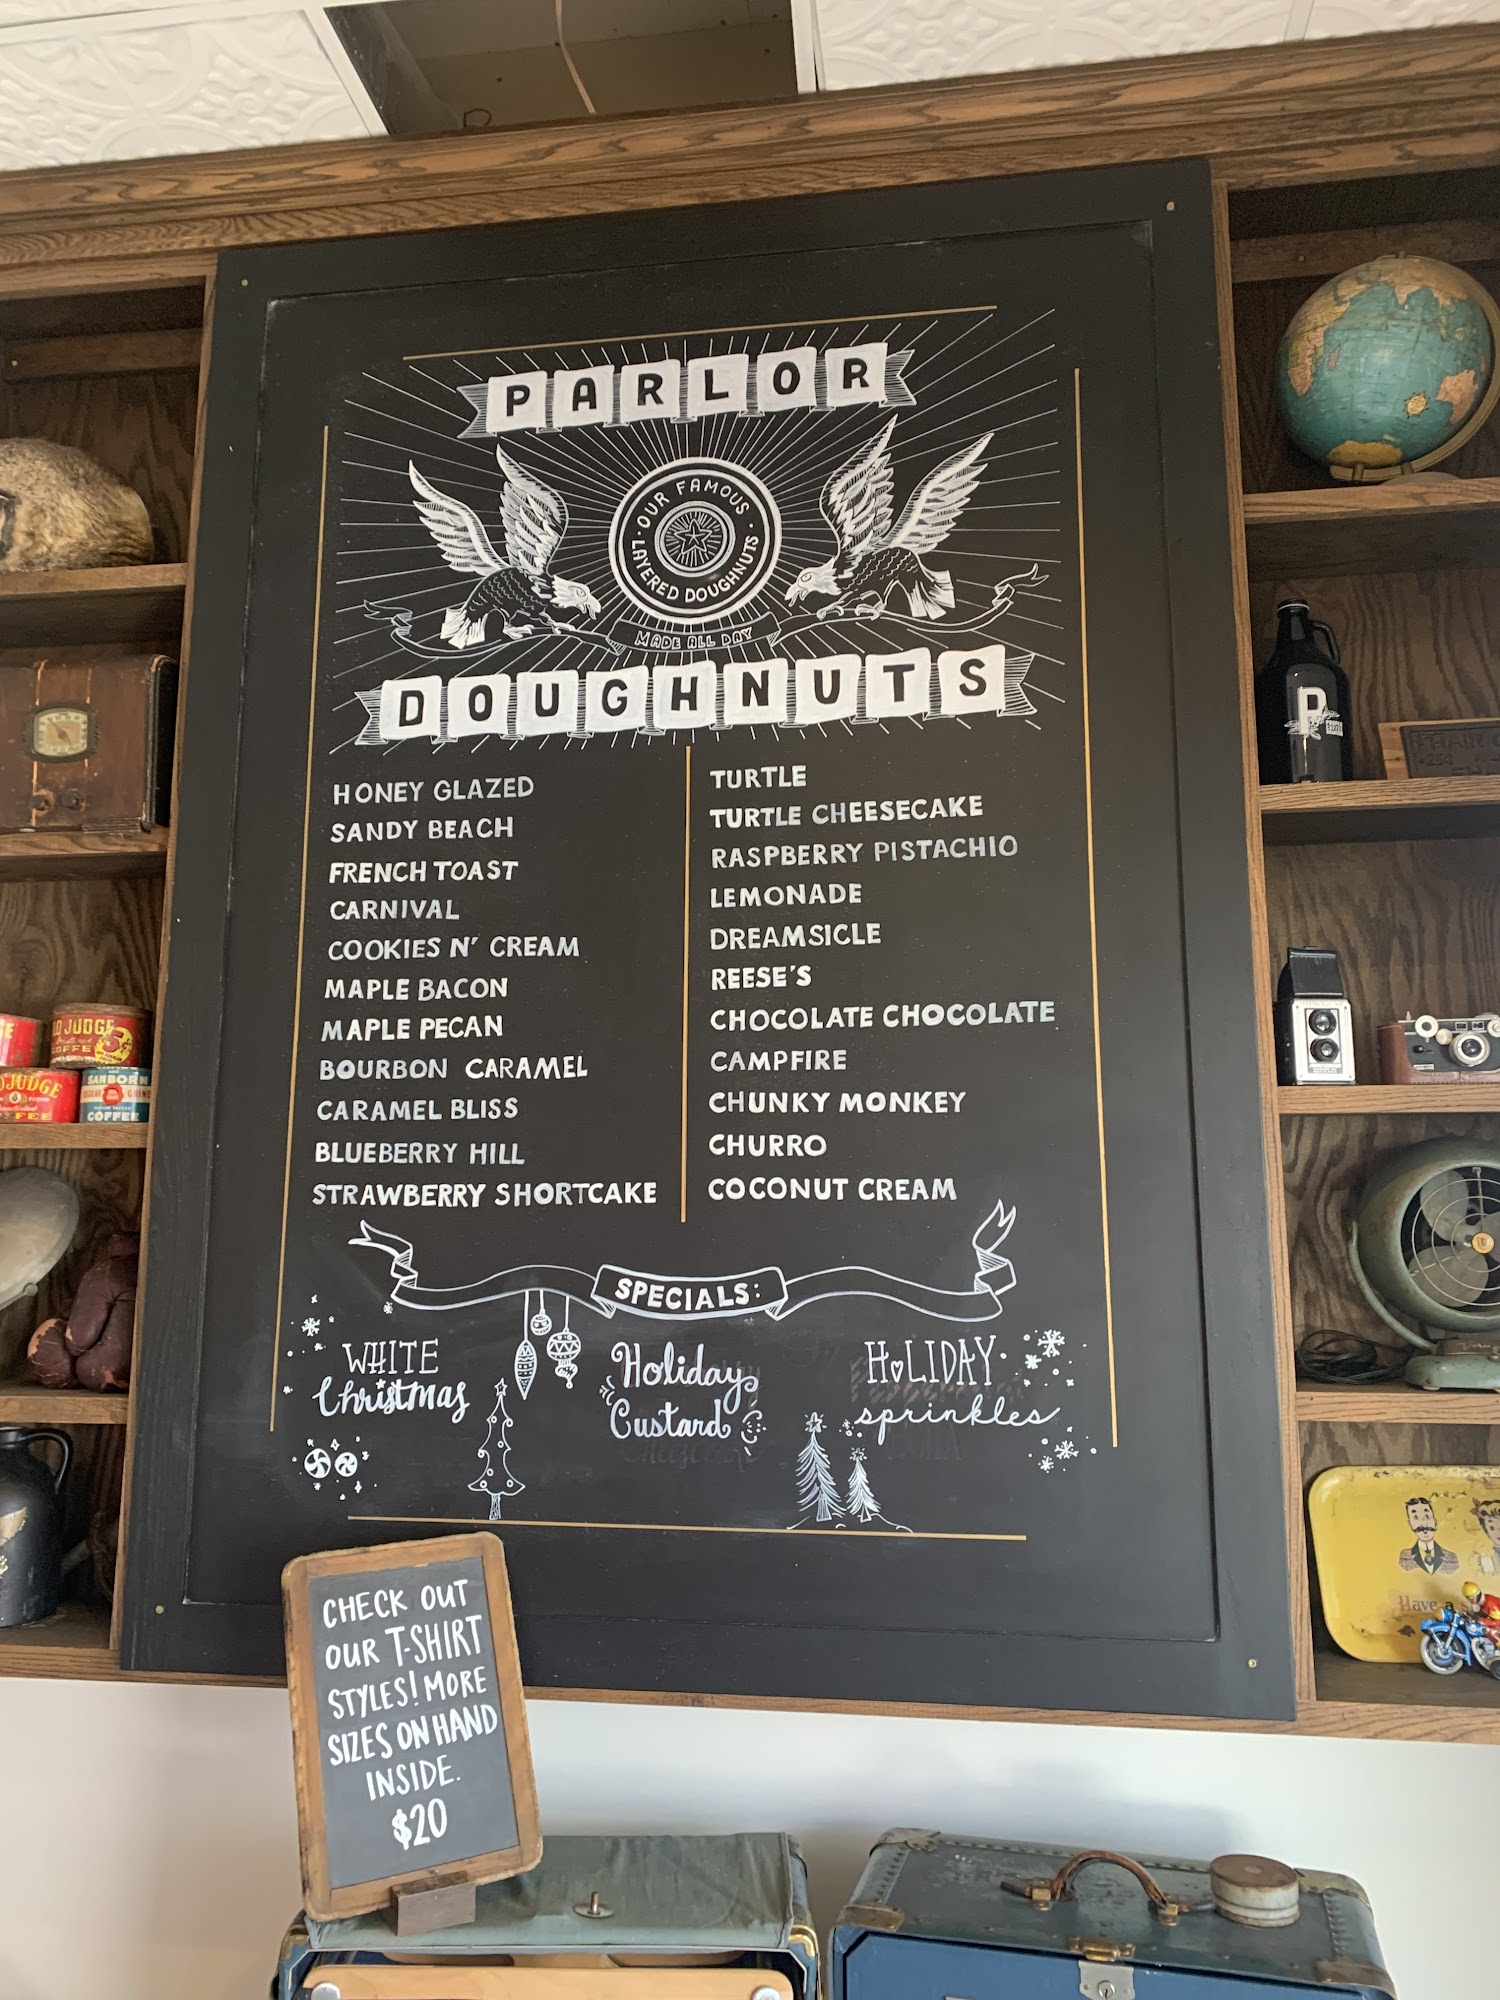 PARLOR
OUR FAMOUS
LAYERED DOUGHNUTS
MADE ALL DAY
DOUGHNUTS
HONEY GLAZED
SANDY BEACH
FRENCH TOAST
CARNIVAL
COOKIES N' CREAM
MAPLE BACON
MAPLE PECAN
BOURBON CARAMEL
CARAMEL BLISS
BLUEBERRY HILL
STRAWBERRY SHORTCAKE
TURTLE
TURTLE CHEESECAKE
RASPBERRY PISTACHIO
LEMONADE
DREAMSICLE
REESE'S
CHOCOLATE CHOCOLATE
CAMPFIRE
CHUNKY MONKEY
CHURRO
COCONUT CREAM
SPECIALS:
WHITE
Christmas
Holiday
Custard
HOLIDAY
sprinkles
CHECK OUT
OUR T-SHIRT
STYLES! MORE
SIZES ON HAND
INSIDE.
$20
JUDGE
COFFEE
JUDGE
SANBORN
COFFEE
P
Have a